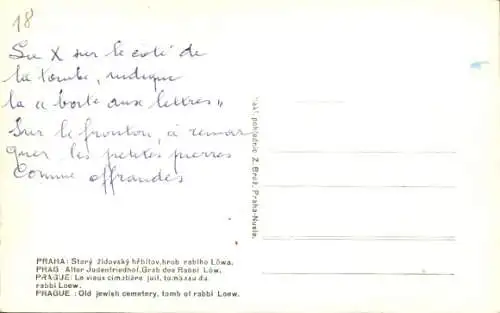 18
Le X sur le côté de
la tombe, indique
la « boite aux lettres »
Sur le fronton, à remar
quer les petites pierres
Comme offrandes
Nakl. pohlednic Z. Brok, Praha-Nusle.
PRAHA: Starý židovský hřbitov, hrob rabiho Löwa.
PRAG Alter Judenfriedhof. Grab des Rabbi Löw.
PRAGUE: Le vieux cimetière juif, tombeau du
rabbi Loew.
PRAGUE : Old jewish cemetery, tomb of rabbi Loew.